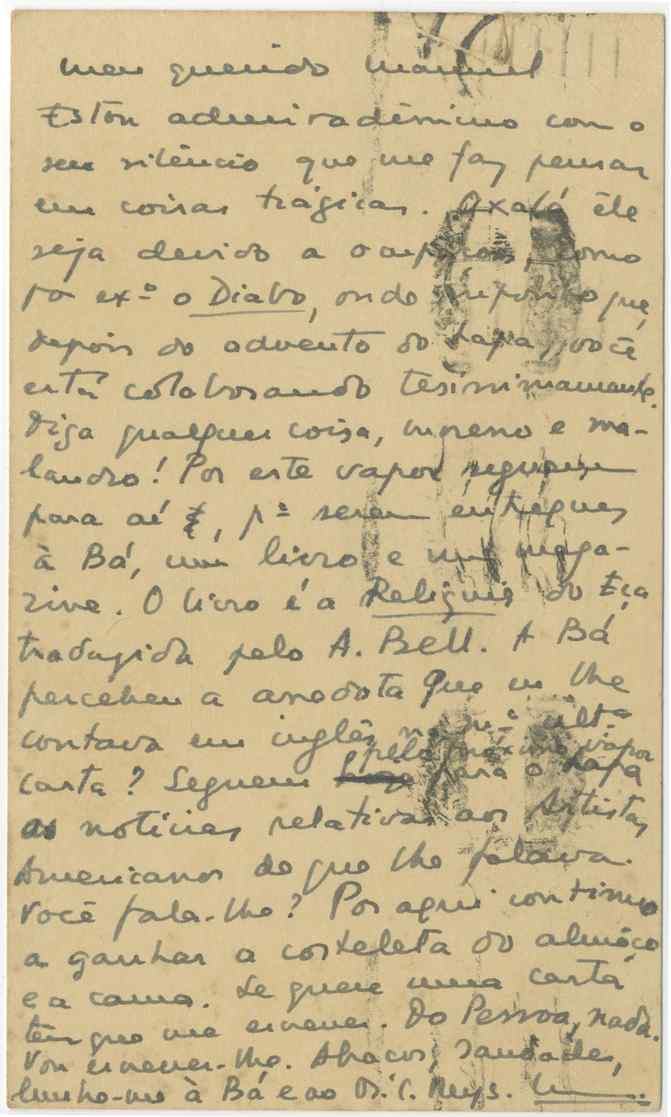 meu querido manuel
Estou admiradíssimo com o
seu silêncio que me faz pensar
em coisas trágicas. Oxalá êle
seja devido a ocupações, como
por exº o Diabo, onde suponho que,
depois do advento do Lapa, você
está colaborando
Diga qualquer coisa, e ma-
landro! Por este vapor seguem
para aí, pª serem entregues
à Bá, um livro e um maga-
zine. O livro é a Reliquia do Eça
traduzida pelo A. Bell. A Bá
percebeu a anedota que eu lhe
contava em inglês na mª ultª
carta? Seguem pelo próximo vapor para o Lapa
as notícias relativas aos Artistas
Americanos de que lhe falava.
Você fala-lhe? Por aqui continuo
a ganhar a costeleta do almôço
e a cama. Se quere uma carta
tem que me escrever. Do Pessoa, nada.
Vou escrever-lhe. Abraços, saudades,
à Bá e ao